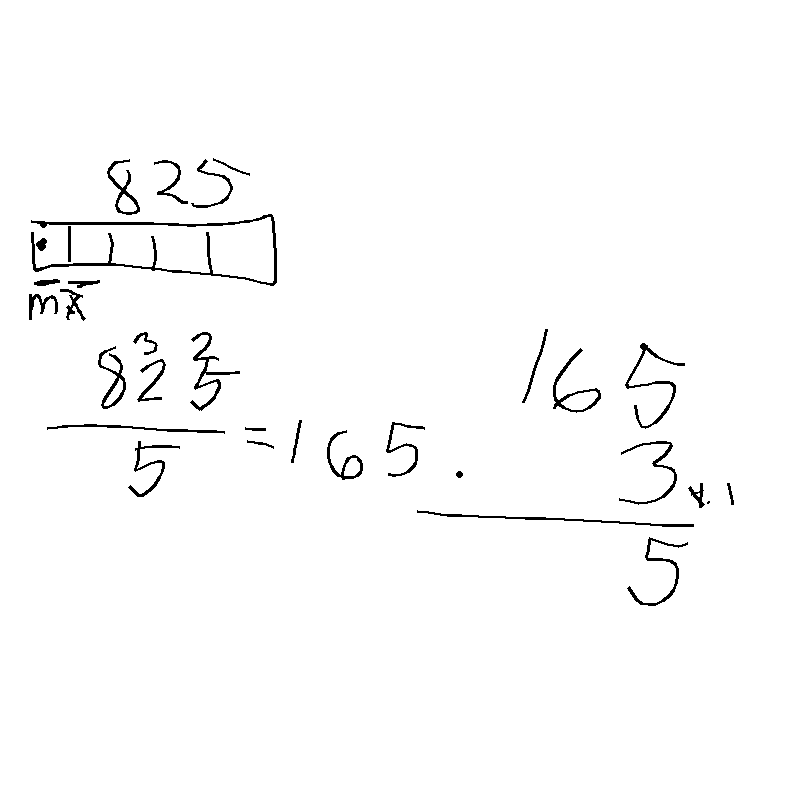 825
m x
8 3 2 2 5
5
= 165.
165
3 x. 1
5